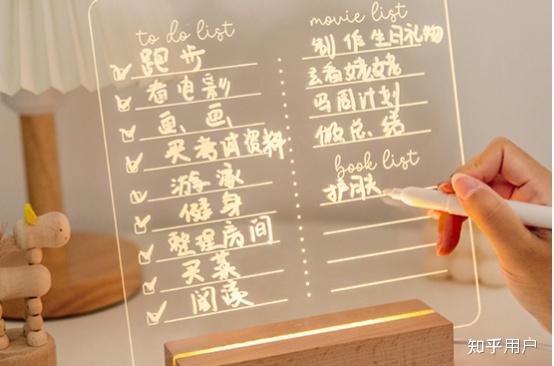 to do list
跑步
看电影
画画
买考研资料
游泳
健身
整理房间
买菜
阅读
movie list
制作生日礼物
去看姥姥
写周计划
做总结
book list
护肤
知乎用户